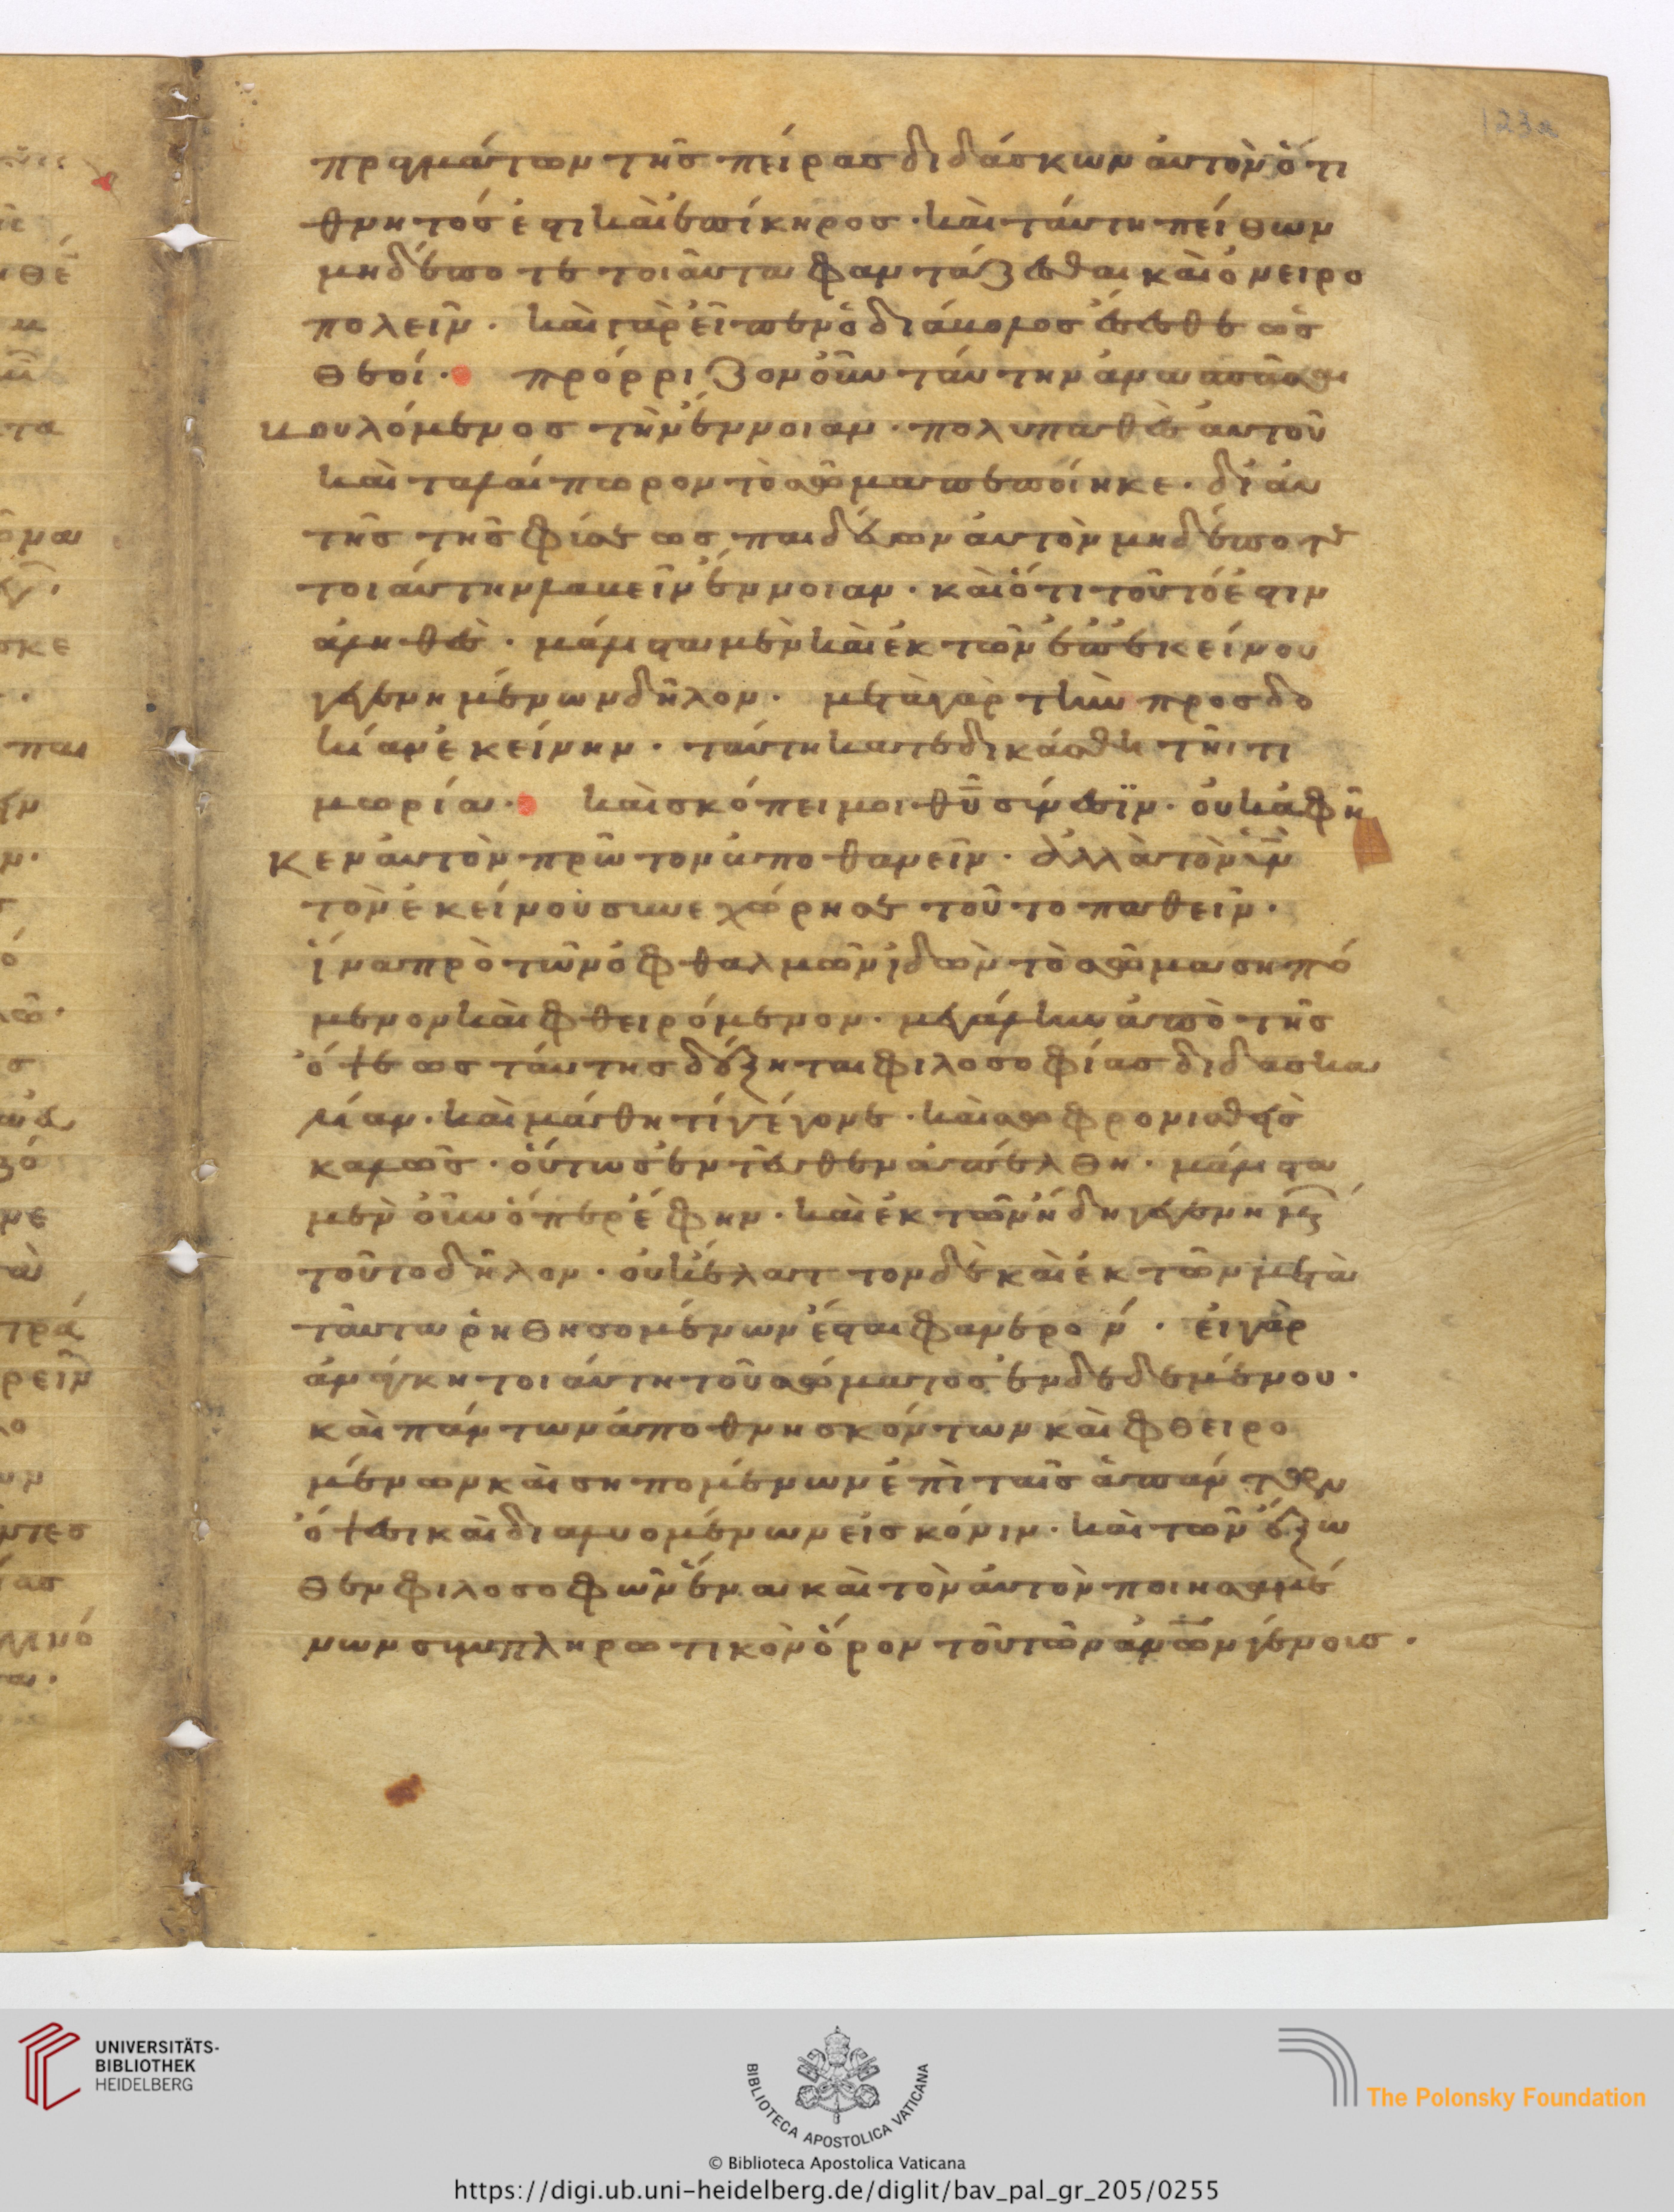 123a
πραγμάτων τῆς πείρας διδάσκων ἀυτὸν ὅτι
θνητός ἐστι καὶ ἐπίκηρος · καὶ ταύτη πείθων
μηδέποτε τοιαῦτα φαντάζεσθαι καὶ ὀνειρο
πολεῖν · καὶ γὰρ εἶπεν ὁ διάβολος ἔσεσθε ὡς
θεοί · πρόρριζον οὖν ταύτην ἀνασπᾶσαι
βουλόμενος τὴν ἔννοιαν · πολυπαθὲς ἀυτοῦ
καὶ ταλαίπωρον τὸ σῶμα πεποίηκε · δι ἀυ
τῆς τῆς φύσεως παιδεύων ἀυτὸν μηδέποτε
τοιάυτην λαβεῖν ἔννοιαν · καὶ ὅτι τοῦτό ἐστιν
ἀληθὲς · μάλιστα μὲν καὶ ἐκ τῶν ἐπ' ἐκείνου
γεγενημένων δῆλον · μετὰ γὰρ τὴν προσδο
κίαν ἐκείνην · ταύτη κατεδικάσθη τῆι τι
μωρία · καὶ σκόπει μοι θῦ σύνεσϊν · ὀυκ ἀφῆ
κεν ἀυτὸν πρῶτον ἀποθανεῖν · ἀλλὰ τὸν ὑῒν
τὸν ἐκείνου συνεχώρησε τοῦτο παθεῖν ·
ἵνα πρὸ τῶν ὀφθαλμῶν ἰδὼν τὸ σῶμα σηπό
μενον καὶ φθειρόμενον · μεγάλην ἀπὸ τῆς
ὄψεως ταύτης δέξηται φιλοσοφίας διδασκα
λίαν · καὶ μάθη τί γέγονε · καὶ σωφρονισθεὶς
καλῶς · ὅυτως ἐντεῦθεν ἀπέλθη · μάλιστα
μὲν οὖν ὅπερ ἔφην · καὶ ἐκ τῶν ἤδη γεγενημέ
τοῦτο δῆλον · ὀυκ ἔλαττον δὲ καὶ ἐκ τῶν μετὰ
ταῦτα ῥηθησομένων ἔσται φανερόν · εἰ γὰρ
ἀνάγκη τοιάυτη τοῦ σώματος ἐνδεδεμένου ·
καὶ πάντων ἀποθνησκόντων καὶ φθειρο
μένων καὶ σηπομένων ἐπὶ ταῖς ἁπάντων
ὄψεσι καὶ διαλυομένων εἰς κόνιν · καὶ τῶν ἔξω
θεν φιλοσόφων ἕνα καὶ τὸν ἀυτὸν ποιησαμέ
νων συμπληρωτικὸν ὅρον τοῦ τῶν ἀνῶν γένους ·
UNIVERSITÄTS-
BIBLIOTHEK
HEIDELBERG
BIBLIOTECA APOSTOLICA VATICANA
The Polonsky Foundation
© Biblioteca Apostolica Vaticana
https://digi.ub.uni-heidelberg.de/diglit/bav_pal_gr_205/0255